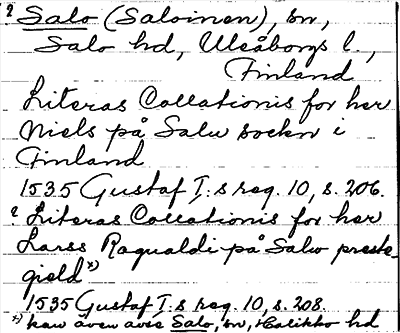 ? Salo (Saloinen), sn,
Salo hd, Uleåborgs l.,
Finland
Literas Collationis for her
Niels på Salw sockn i
Finland
1535 Gustaf I:s reg. 10, s. 206.
? Literas Collationis for her
Larss Ragualdi på Salw preste-
gield x)
1535 Gustaf I:s reg. 10, s. 208.
x) kan även avse Salo, sn, Halikko hd